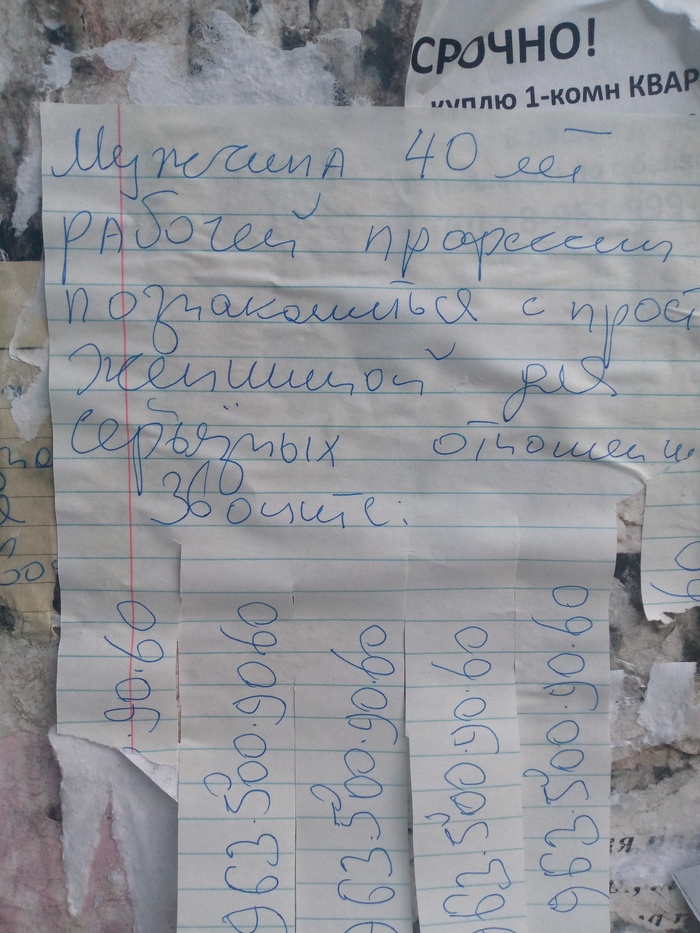 СРОЧНО!
куплю 1-комн КВАР
Мужчина 40 лет
рабочей профессии
познакомиться с прост
женшиной для
серьёзных отношени
Звоните:
90.60
963.500.90.60
963.500.90.60
963.500.90.60
963.500.90.60